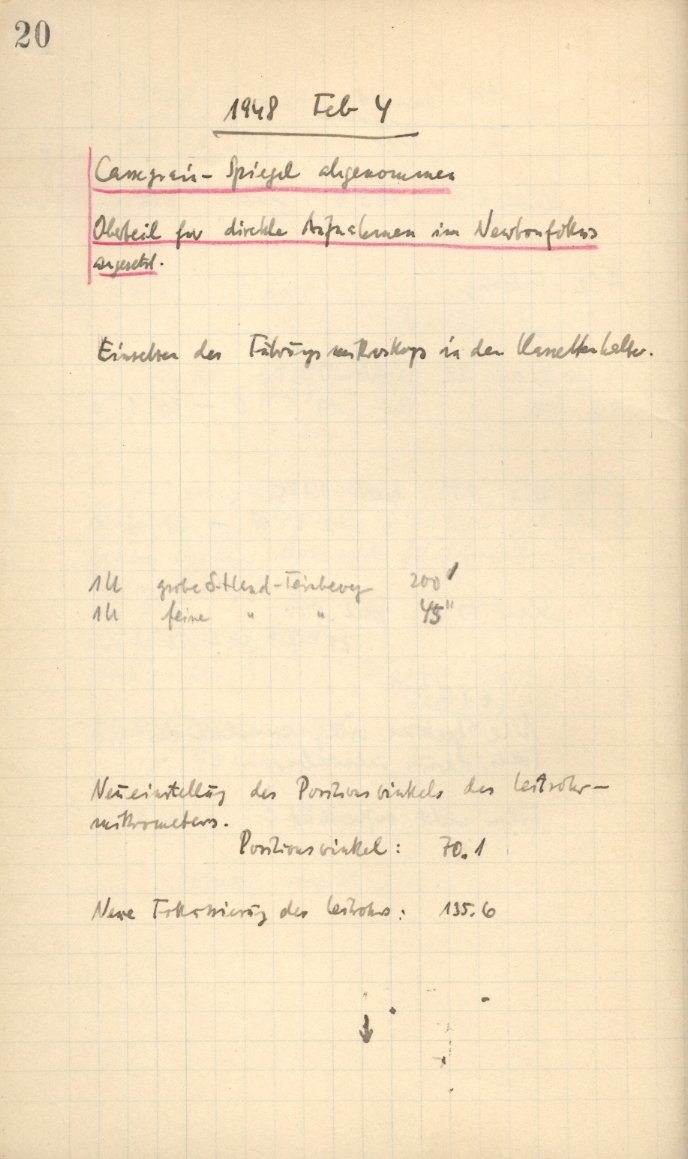 20
1948 Feb 4
Cassegrain-Spiegel abgenommen
Oberteil für direkte Aufnahmen im Newtonfokus
angesetzt.
Einsetzen des Führungsmikroskops in den Kassettenhalter.
1U grobe Stund-Feinbewg 200"
1U feine " " 45"
Neueinstellung des Positionswinkels des Leitrohr-
mikrometers.
Positionswinkel: 70.1
Neue Fokussierung des Leitrohrs: 135.6